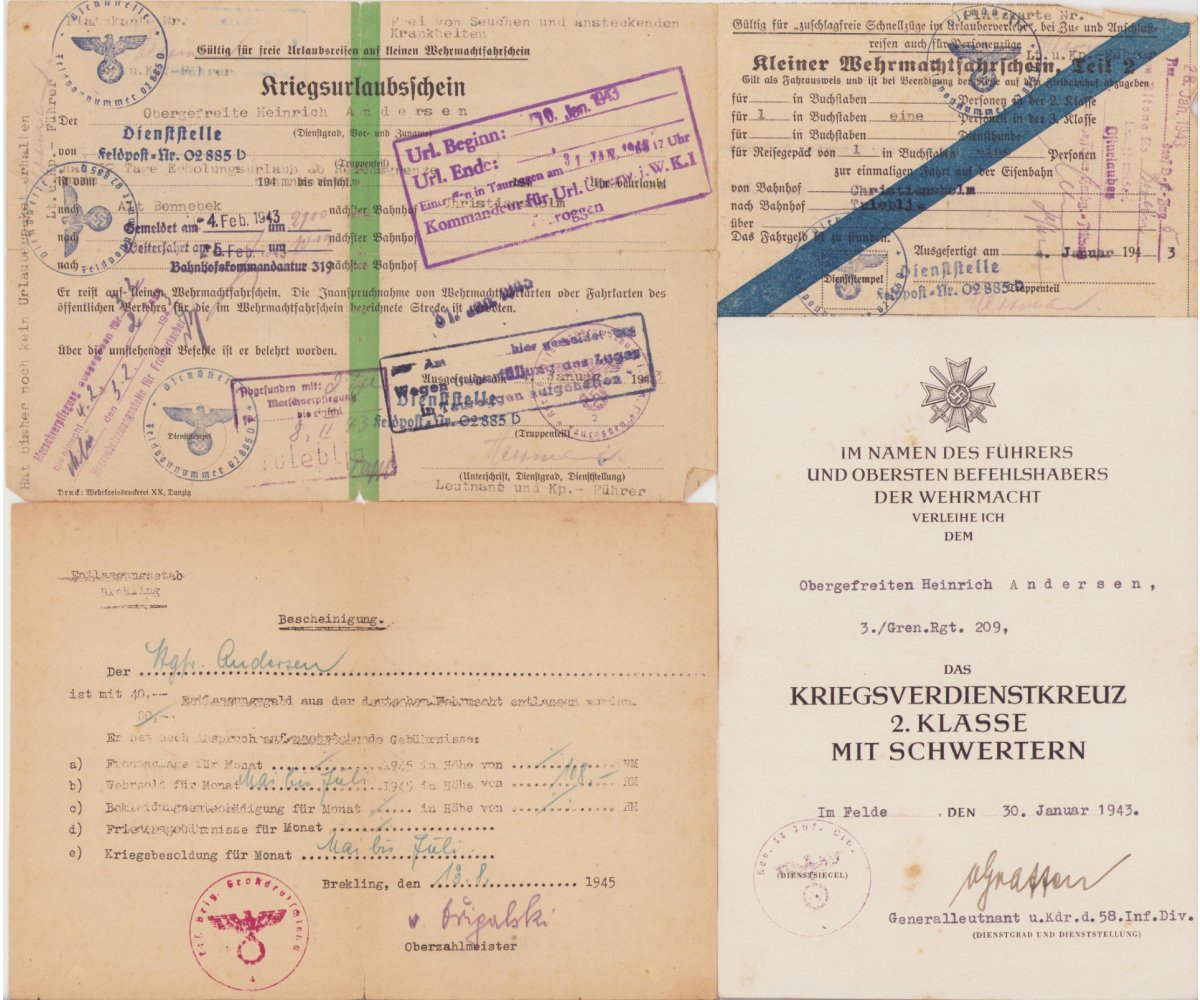 Platzkarte Nr.
Frei von Seuchen und ansteckenden
Krankheiten
Gültig für freie Urlaubsreisen auf kleinen Wehrmachtfahrschein
u.Kp.-Führer
Kriegsurlaubschein
Der Obergefreite Heinrich Andersen
(Dienstgrad, Vor- und Zuname)
von
Dienststelle
Feldpost-Nr. 02885 D
(Truppenteil)
Tage Erholungsurlaub ab Reichsgrenze
ist vom 194 bis einschl. Uhr beurlaubt
nach Alt Bennebek nächster Bahnhof Christiansholm
nach nächster Bahnhof
nach nächster Bahnhof
Gemeldet am -4. Feb. 1943 um 2100
Weiterfahrt am -5. Feb. 1943 um
Bahnhofskommandantur 319
Url. Beginn: 10. Jan. 1943
Url. Ende: 31. JAN. 1943
Eintreffen in Tauroggen am 17 Uhr
Kommandeur für Url. Überw. i. W.K.I
Tauroggen
Er reist auf kleinen Wehrmachtfahrschein. Die Inanspruchnahme von Wehrmachtfahrkarten oder Fahrkarten des
öffentlichen Verkehrs für die im Wehrmachtfahrschein bezeichnete Strecke ist verboten.
31. JAN. 1943
Über die umstehenden Befehle ist er belehrt worden.
Am hier gemeldet
Wegen Überfüllung des Zuges
in Tauroggen aufgehalten
Ausgefertigt am 4. Januar 1943
Dienststelle
Feldpost-Nr. 02885 D
(Truppenteil)
Abgefunden mit:
Marschverpflegung
bis einschl.
8. II 43
Tuleblja
Dienststempel
Dienststelle
Feldpostnummer 02885 D
(Unterschrift, Dienstgrad, Dienststellung)
Leutnant und Kp.- Führer
Druck: Wehrkreisdruckerei XX, Danzig
Hat bisher noch kein Urlauberpaket erhalten
Lt. u. Kp.- Führer
Marschverpflegung ausgegeben für
bis einschl. 4.2.
den 3.2.
Platzkarte Nr.
Gültig für „zuschlagfreie Schnellzüge im Urlauberverkehr“, bei Zu- und Anschluß-
reisen auch für Personenzüge
Lt. u. Kp.-Führer
Kleiner Wehrmachtfahrschein, Teil 2
Gilt als Fahrausweis und ist bei Beendigung der Reise auf dem Zielbahnhof abzugeben
für in Buchstaben Personen in der 2. Klasse
für 1 in Buchstaben eine Personen in der 3. Klasse
für in Buchstaben Diensthunde
für Reisegepäck von 1 in Buchstaben eine Personen
zur einmaligen Fahrt auf der Eisenbahn
von Bahnhof Christiansholm
nach Bahnhof Tuleblja
über
Das Fahrgeld ist zu stunden.
Ausgefertigt am 4. Januar 1943
Dienststempel
Dienststelle
Feldpost-Nr. 02885 D
Truppenteil
Entlassungsstab
Brekling
Bescheinigung.
Der Stgfr. Andersen
ist mit 40,-- Entlassungsgeld aus der deutschen Wehrmacht entlassen worden.
Er hat noch Anspruch auf nachstehende Gebührnisse:
a) Frontzulage für Monat 1945 in Höhe von RM
b) Wehrsold für Monat Mai bis Juli 1945 in Höhe von 108,- RM
c) Bekleidungsentschädigung für Monat in Höhe von RM
d) Friedensgebührnisse für Monat
e) Kriegsbesoldung für Monat Mai bis Juli
Brekling, den 13.8. 1945
Oberzahlmeister
IM NAMEN DES FÜHRERS
UND OBERSTEN BEFEHLSHABERS
DER WEHRMACHT
VERLEIHE ICH
DEM
Obergefreiten Heinrich Andersen,
3./Gren.Rgt. 209,
DAS
KRIEGSVERDIENSTKREUZ
2. KLASSE
MIT SCHWERTERN
Im Felde , DEN 30. Januar 1943.
(DIENSTSIEGEL)
vGraffen
Generalleutnant u.Kdr.d.58.Inf.Div.
(DIENSTGRAD UND DIENSTSTELLUNG)